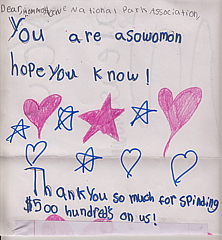 Dear Mammoth Cave National Park Association,
You are asowoman
hope you know!
Thank you so much for spinding
$500 hundreds on us!